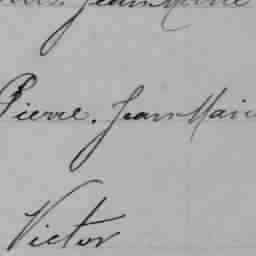 Jean Marie
Pierre. Jean Marie
Victor